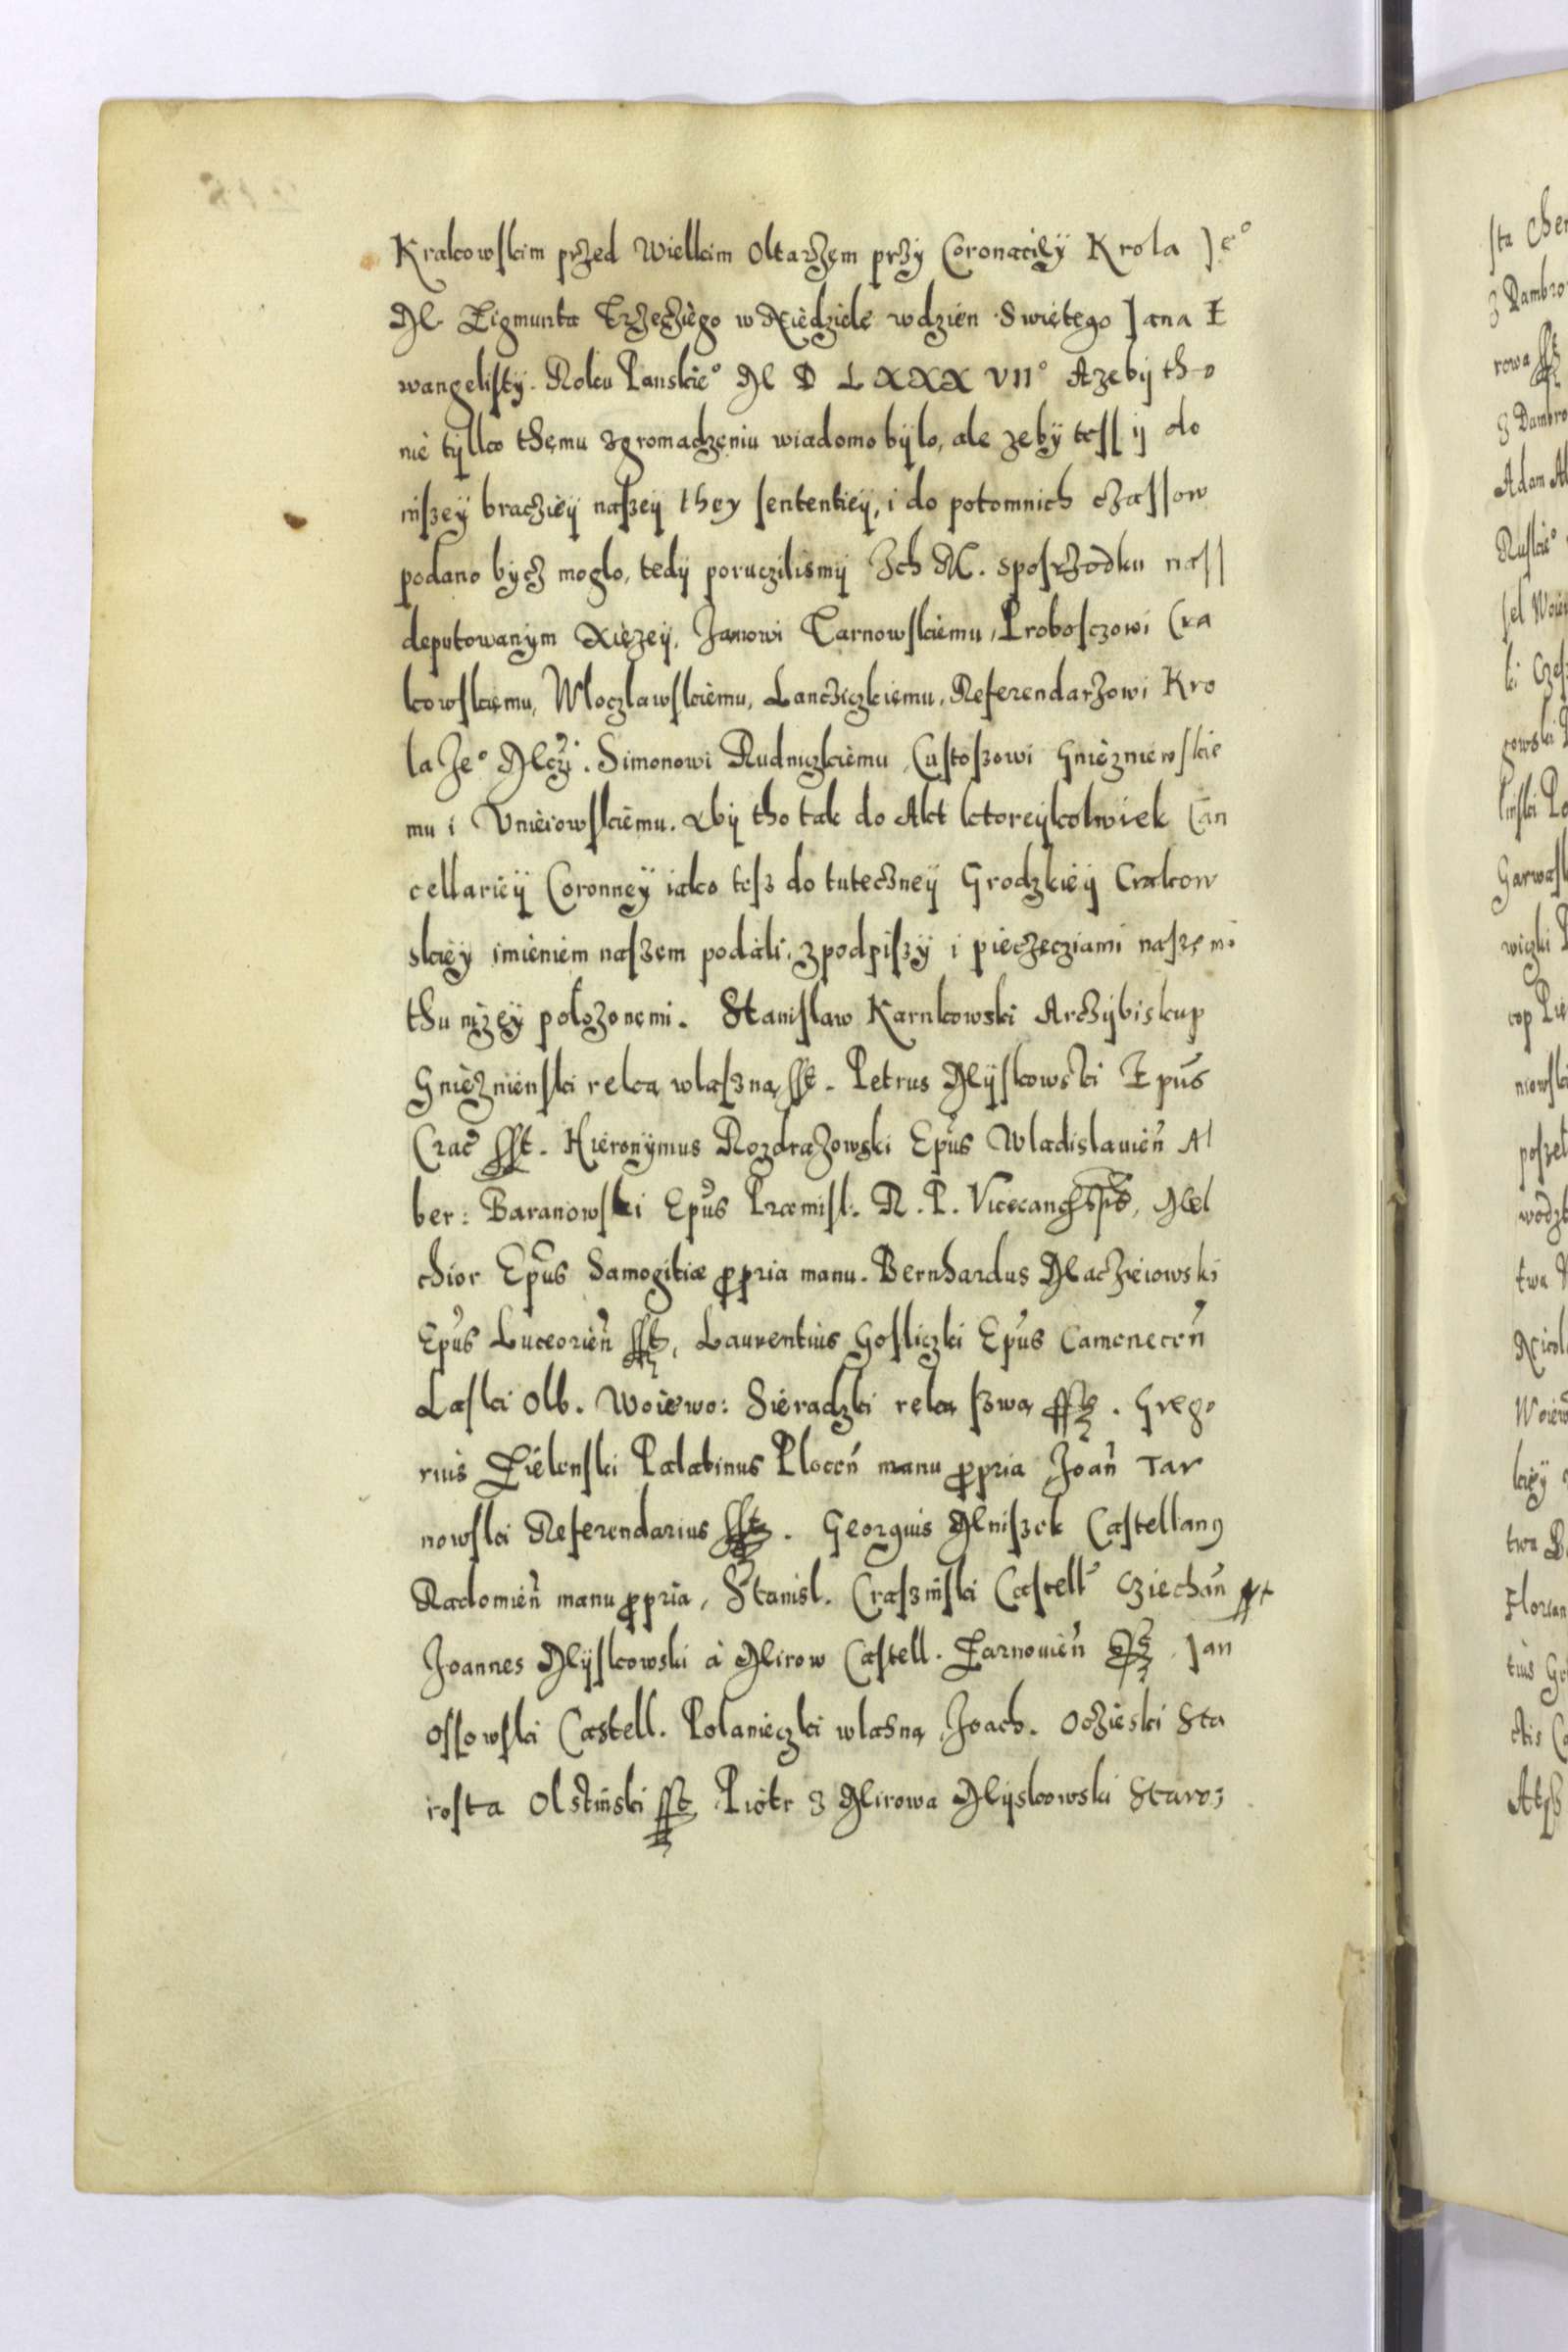 Krakowskim przed Wielkim Oltarzem przÿ Coronaciÿ Krola Je°
M. Zigmunta Trzecziego w Niedziele wdzien Swiętego Jana E
wangelistÿ. Roku Panskie° M D LXXX VII° Azebÿ tho
nie tÿlko themu zgromadzeniu wiadomo bÿlo, ale zebÿ tess ÿ do
inszeÿ braczieÿ naszeÿ they sententieÿ, i do potomnich czassow
podano bÿcz moglo, tedÿ poruczilismÿ Ich M. sposrzodku nass
deputowanÿm Xiezeÿ, Janowi Tarnowskiemu, Proboszczowi Cra
kowskiemu, Wloczlawskiemu, Lancziczkiemu, Referendarzowi Kro
la Je° Mczi. Simonowi Rudniczkiemu Custoszowi Gnieznienskie
mu i Unieiowskiemu. Abÿ tho tak do Akt ktoreÿkolwiek Can
cellarieÿ Coronneÿ iako tesz do tuteczneÿ Grodzkieÿ Crakow
skieÿ imieniem naszem podali, z podpiszÿ i pieczecziami naszemi
thu nizeÿ polozonemi. Stanislaw Karnkowski Arczÿbiskup
Gnieznienski reką wlaszną sst. Petrus Mÿskowski Epus
Crac sst. Hieronÿmus Rozdrazowski Epus Wladislauien Al
ber: Baranowski Epus Præmisl. R. P. Vicecan, Mel
chior Epus Samogitiæ ppria manu. Bernhardus Maczieiowski
Epus Luceorien sst, Laurentius Gosliczki Epus Camenecen
Laski Olb. Woiewo: Sieradzki reką szwą sst. Grego
rius Zielenski Palatinus Plocen manu ppria Joan Tar
nowski Referendarius sst. Georgius Mniszek Castellanus
Radomien manu ppria, Stanisl. Craszinski Castell Cziechan sst
Joannes Mÿskowski à Mirow Castell. Zarnouien sst, Jan
Ossowski Castell. Polanieczki wlasną, Joach. Oczieski Sta
rosta Olstinski sst Piotr z Mirowa Mÿskowski Staros